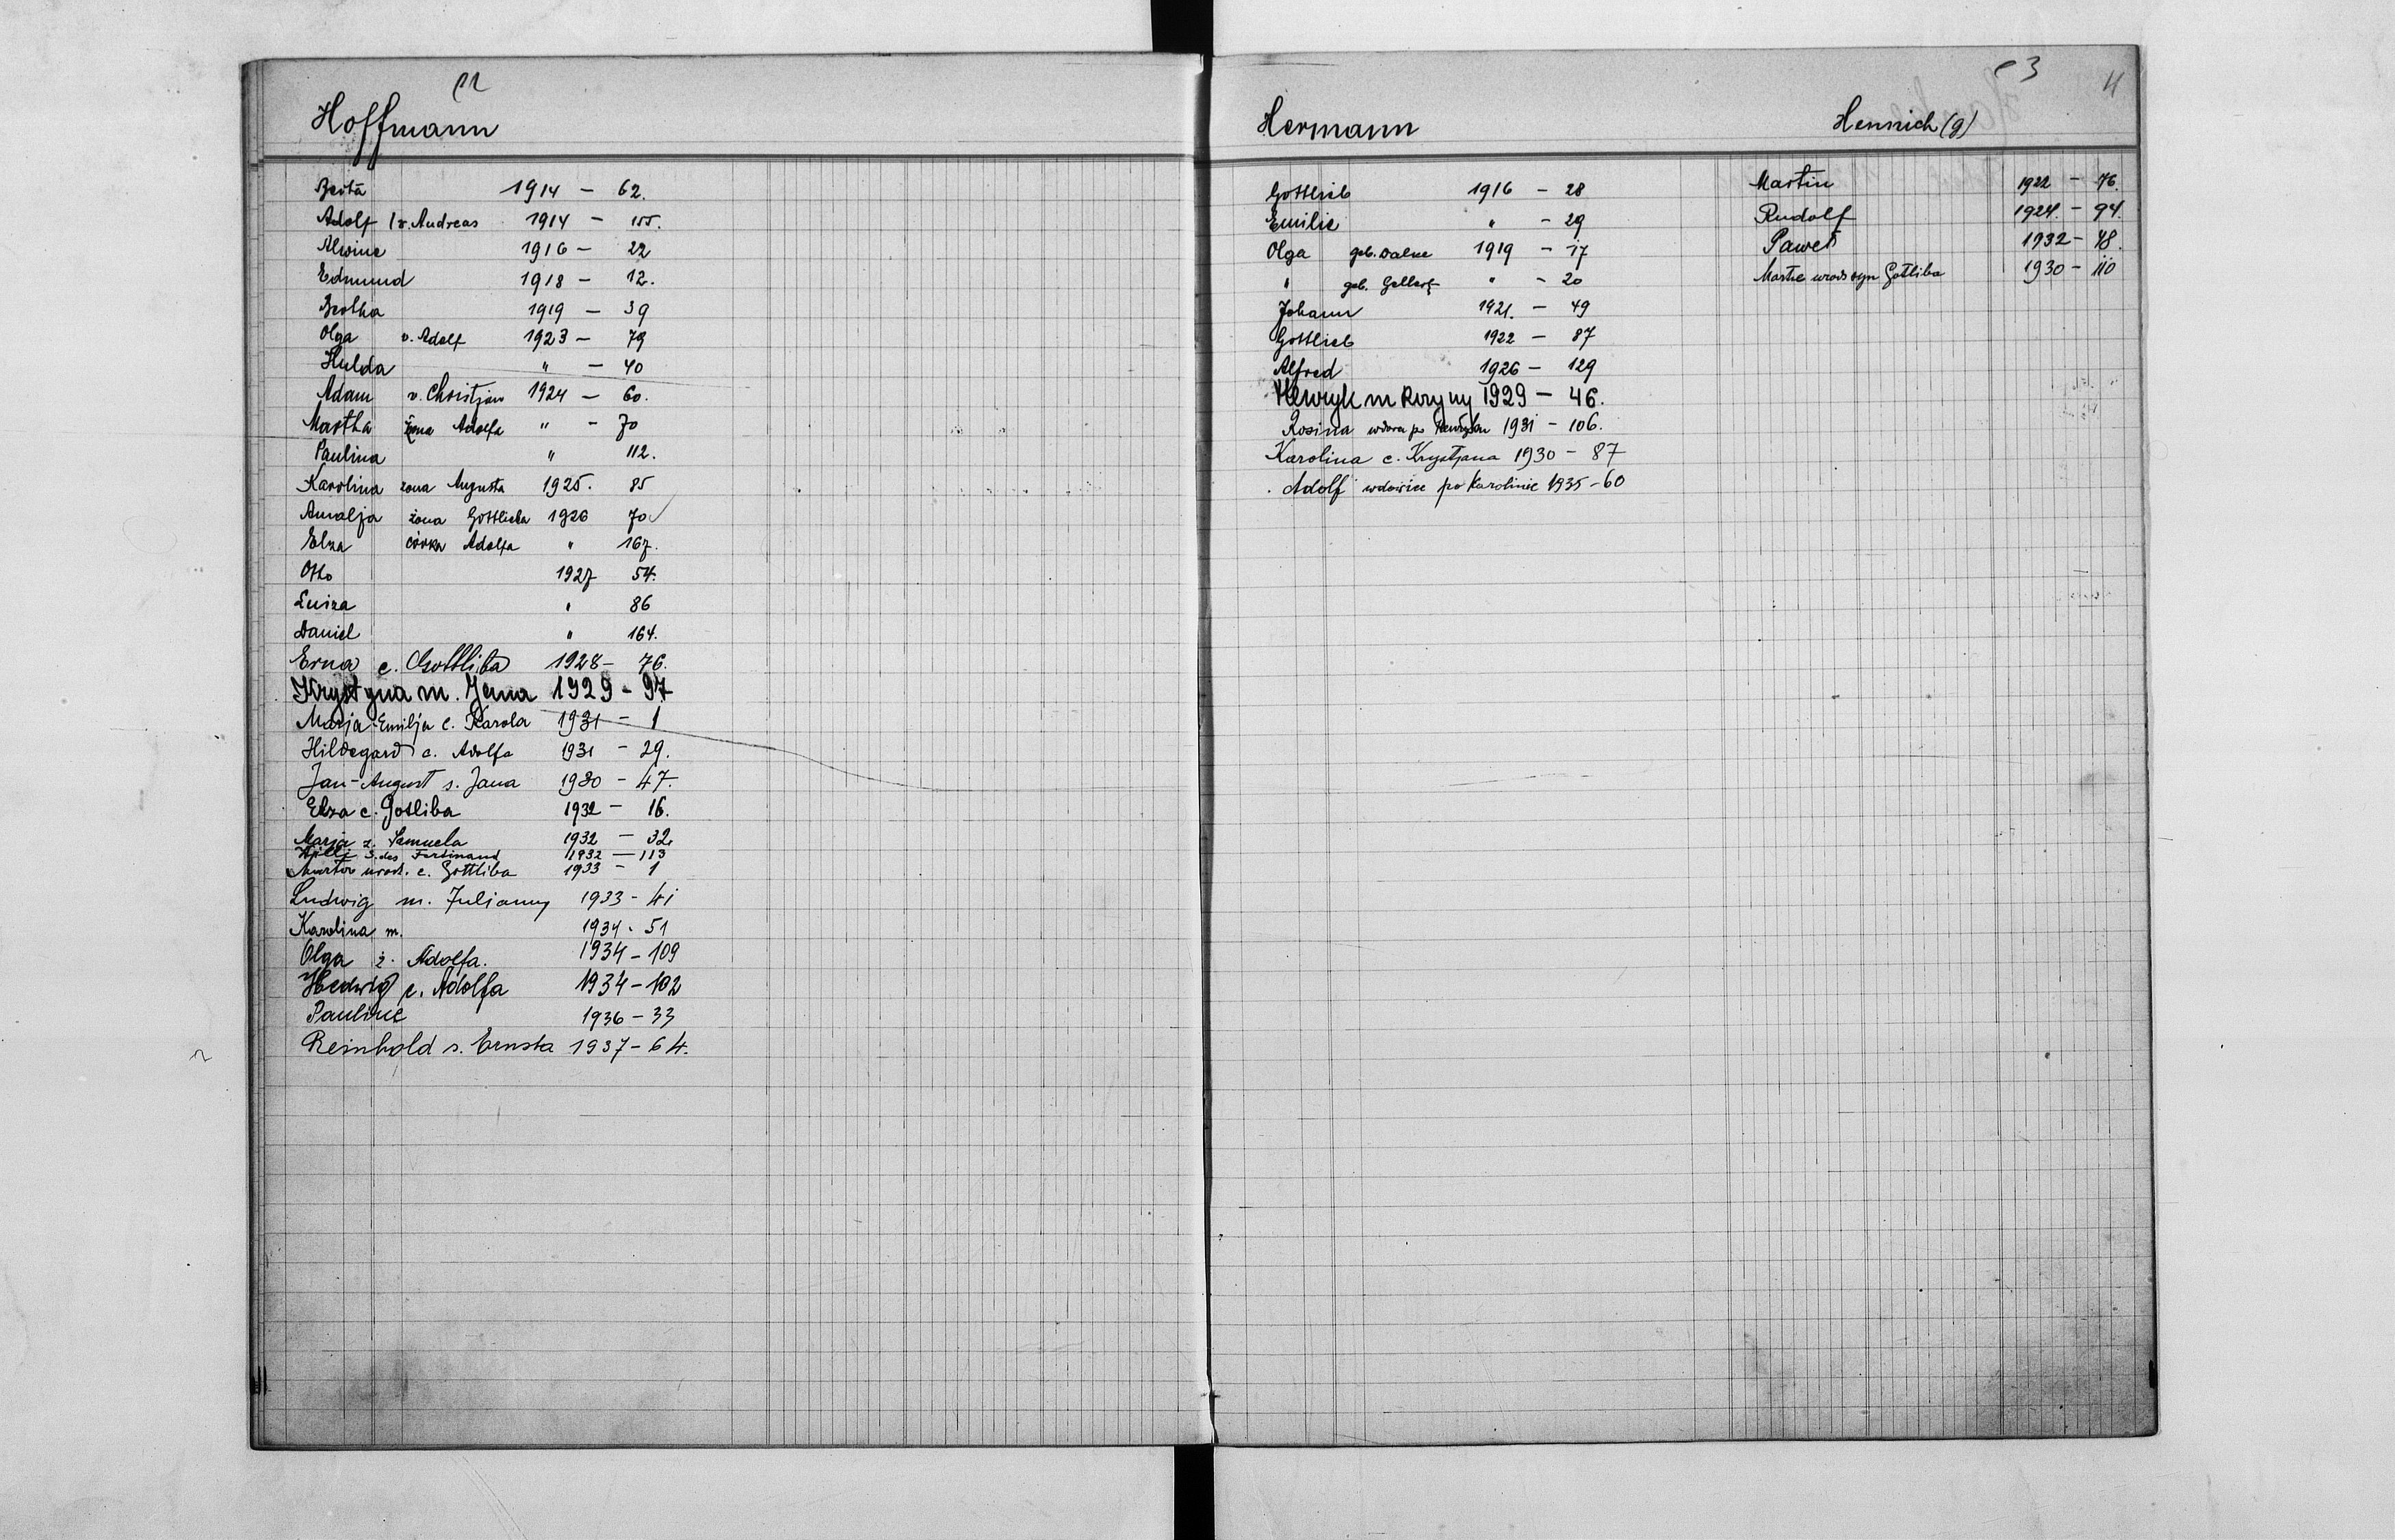 Hoffmann
Berta 1914 - 62.
Adolf (v. Andreas 1914 - 155.
Alwine 1916 - 22
Edmund 1918 - 12.
Bertha 1919 - 39
Olga v. Adolf 1923 - 79
Hulda " - 40
Adam v. Christjan 1924 - 60.
Martha żona Adolfa " - 70
Paulina " 112.
Karolina żona Augusta 1925. 85
Amalja żona Gottlieba 1926 70
Elza córka Adolfa " 167.
Otto 1927 54.
Luiza " 86
Daniel " 164.
Erna c. Gottliba 1928 - 76.
Krystyna m. Jana 1929 - 97
Marja-Emilja c. Karola 1931 - 1
Hildegard c. Adolfa 1931 - 29.
Jan-August s. Jana 1930 - 47.
Elza c. Gotliba 1932 - 16.
Marja ż. Samuela 1932 - 32
S. des Ferdinand 1932 - 113
urodz. c. Gottliba 1933 - 1
Ludwig m. Julianny 1933 - 41
Karolina m. 1934 - 51
Olga ż. Adolfa. 1934 - 109
Hedwig c. Adolfa 1934 - 102
Pauline 1936 - 33
Reinhold s. Ernsta 1937 - 64.
3
Hermann
Gottlieb 1916 - 28
Emilie " - 29
Olga geb. 1919 - 17
" geb. Gellert " - 20
Johann 1921. - 49
Gottlieb 1922 - 87
Alfred 1926 - 129
Henryk m Rozyny 1929 - 46.
Rosina wdowa po Henryku 1931 - 106.
Karolina c. Krystjana 1930 - 87
Adolf wdowiec po Karolinie 1935 - 60
Hennich (g)
Martin 1922 - 76.
Rudolf 1924. - 94.
Paweł 1932 - 48.
Martwo urodz syn Gotliba 1930 - 110